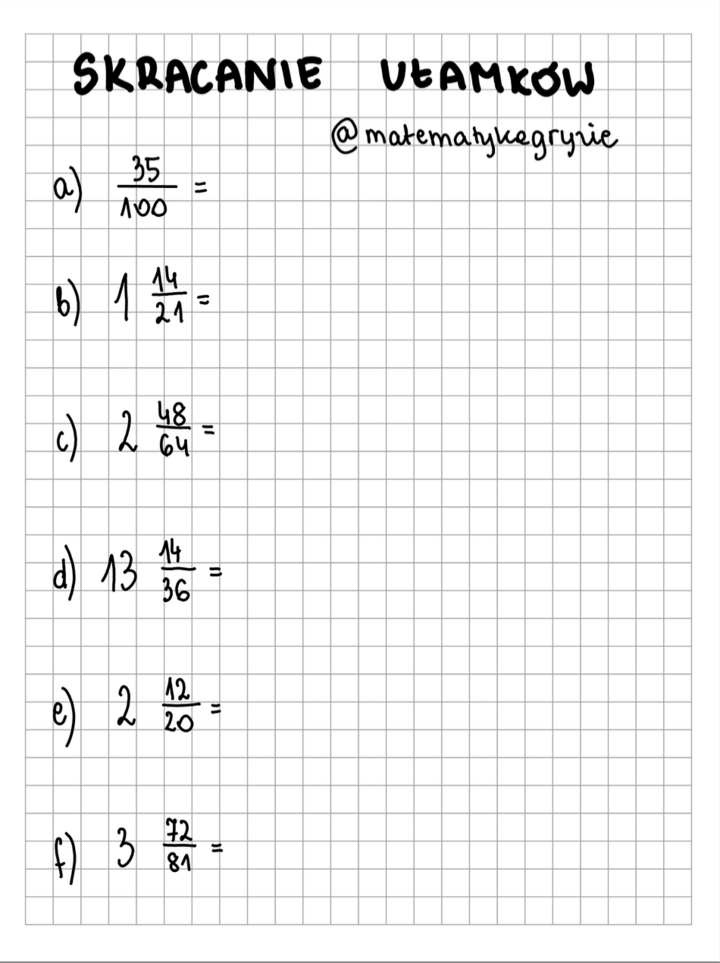 SKRACANIE UŁAMKÓW
@matematykegryzie
a) 35/100 =
b) 1 14/21 =
c) 2 48/64 =
d) 13 14/36 =
e) 2 12/20 =
f) 3 72/81 =